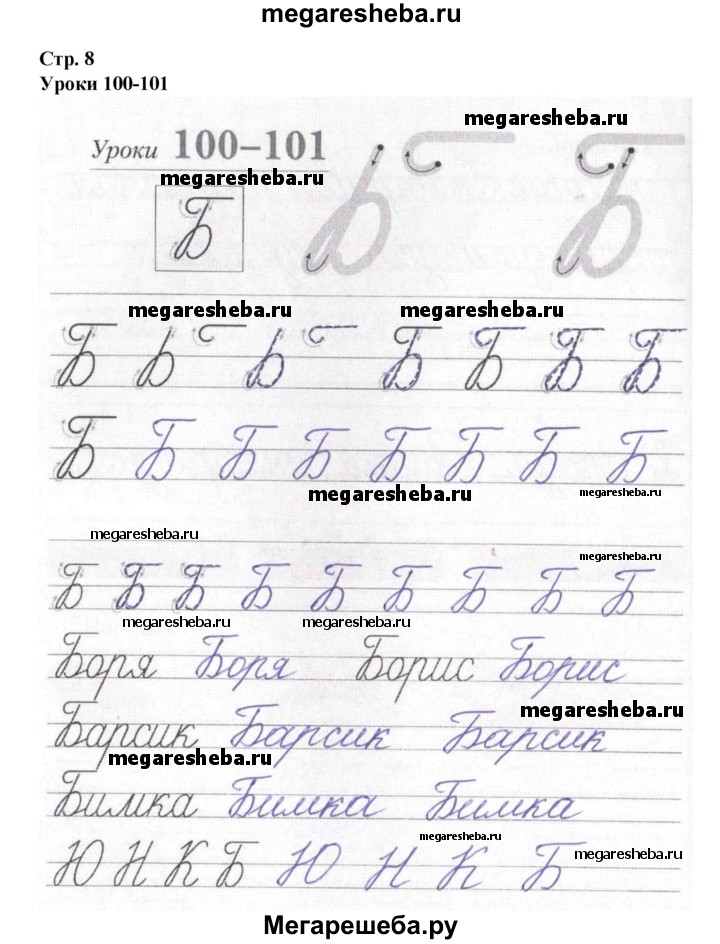 megaresheba.ru
Стр. 8
Уроки 100-101
megaresheba.ru
Уроки 100–101
megaresheba.ru
Б Б Б
megaresheba.ru megaresheba.ru
Б Б Б Б Б Б Б
Б Б Б Б Б Б Б Б
megaresheba.ru megaresheba.ru
megaresheba.ru
megaresheba.ru
Б Б Б Б Б Б Б Б Б
megaresheba.ru megaresheba.ru
Боря Боря Борис Борис
megaresheba.ru
Барсик Барсик Барсик
megaresheba.ru
Бимка Бимка Бимка
megaresheba.ru
megaresheba.ru
Ю Н К Б Ю Н К Б
Мегарешеба.ру